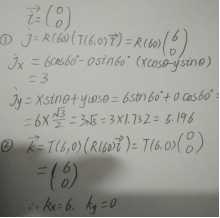 i⃗ = (0 0)
① j⃗ = R(60)(T(6,0)i⃗) = R(60)(6 0)
jx = 6cos60° - 0sin60° (xcosθ-ysinθ)
= 3
jy = xsinθ + ycosθ = 6sin60° + 0cos60° =
= 6 × √3/2 = 3√3 = 3×1.732 = 5.196
② k⃗ = T(6,0)(R(60)i⃗) = T(6,0)(0 0)
= (6 0)
∴ kx = 6, ky = 0